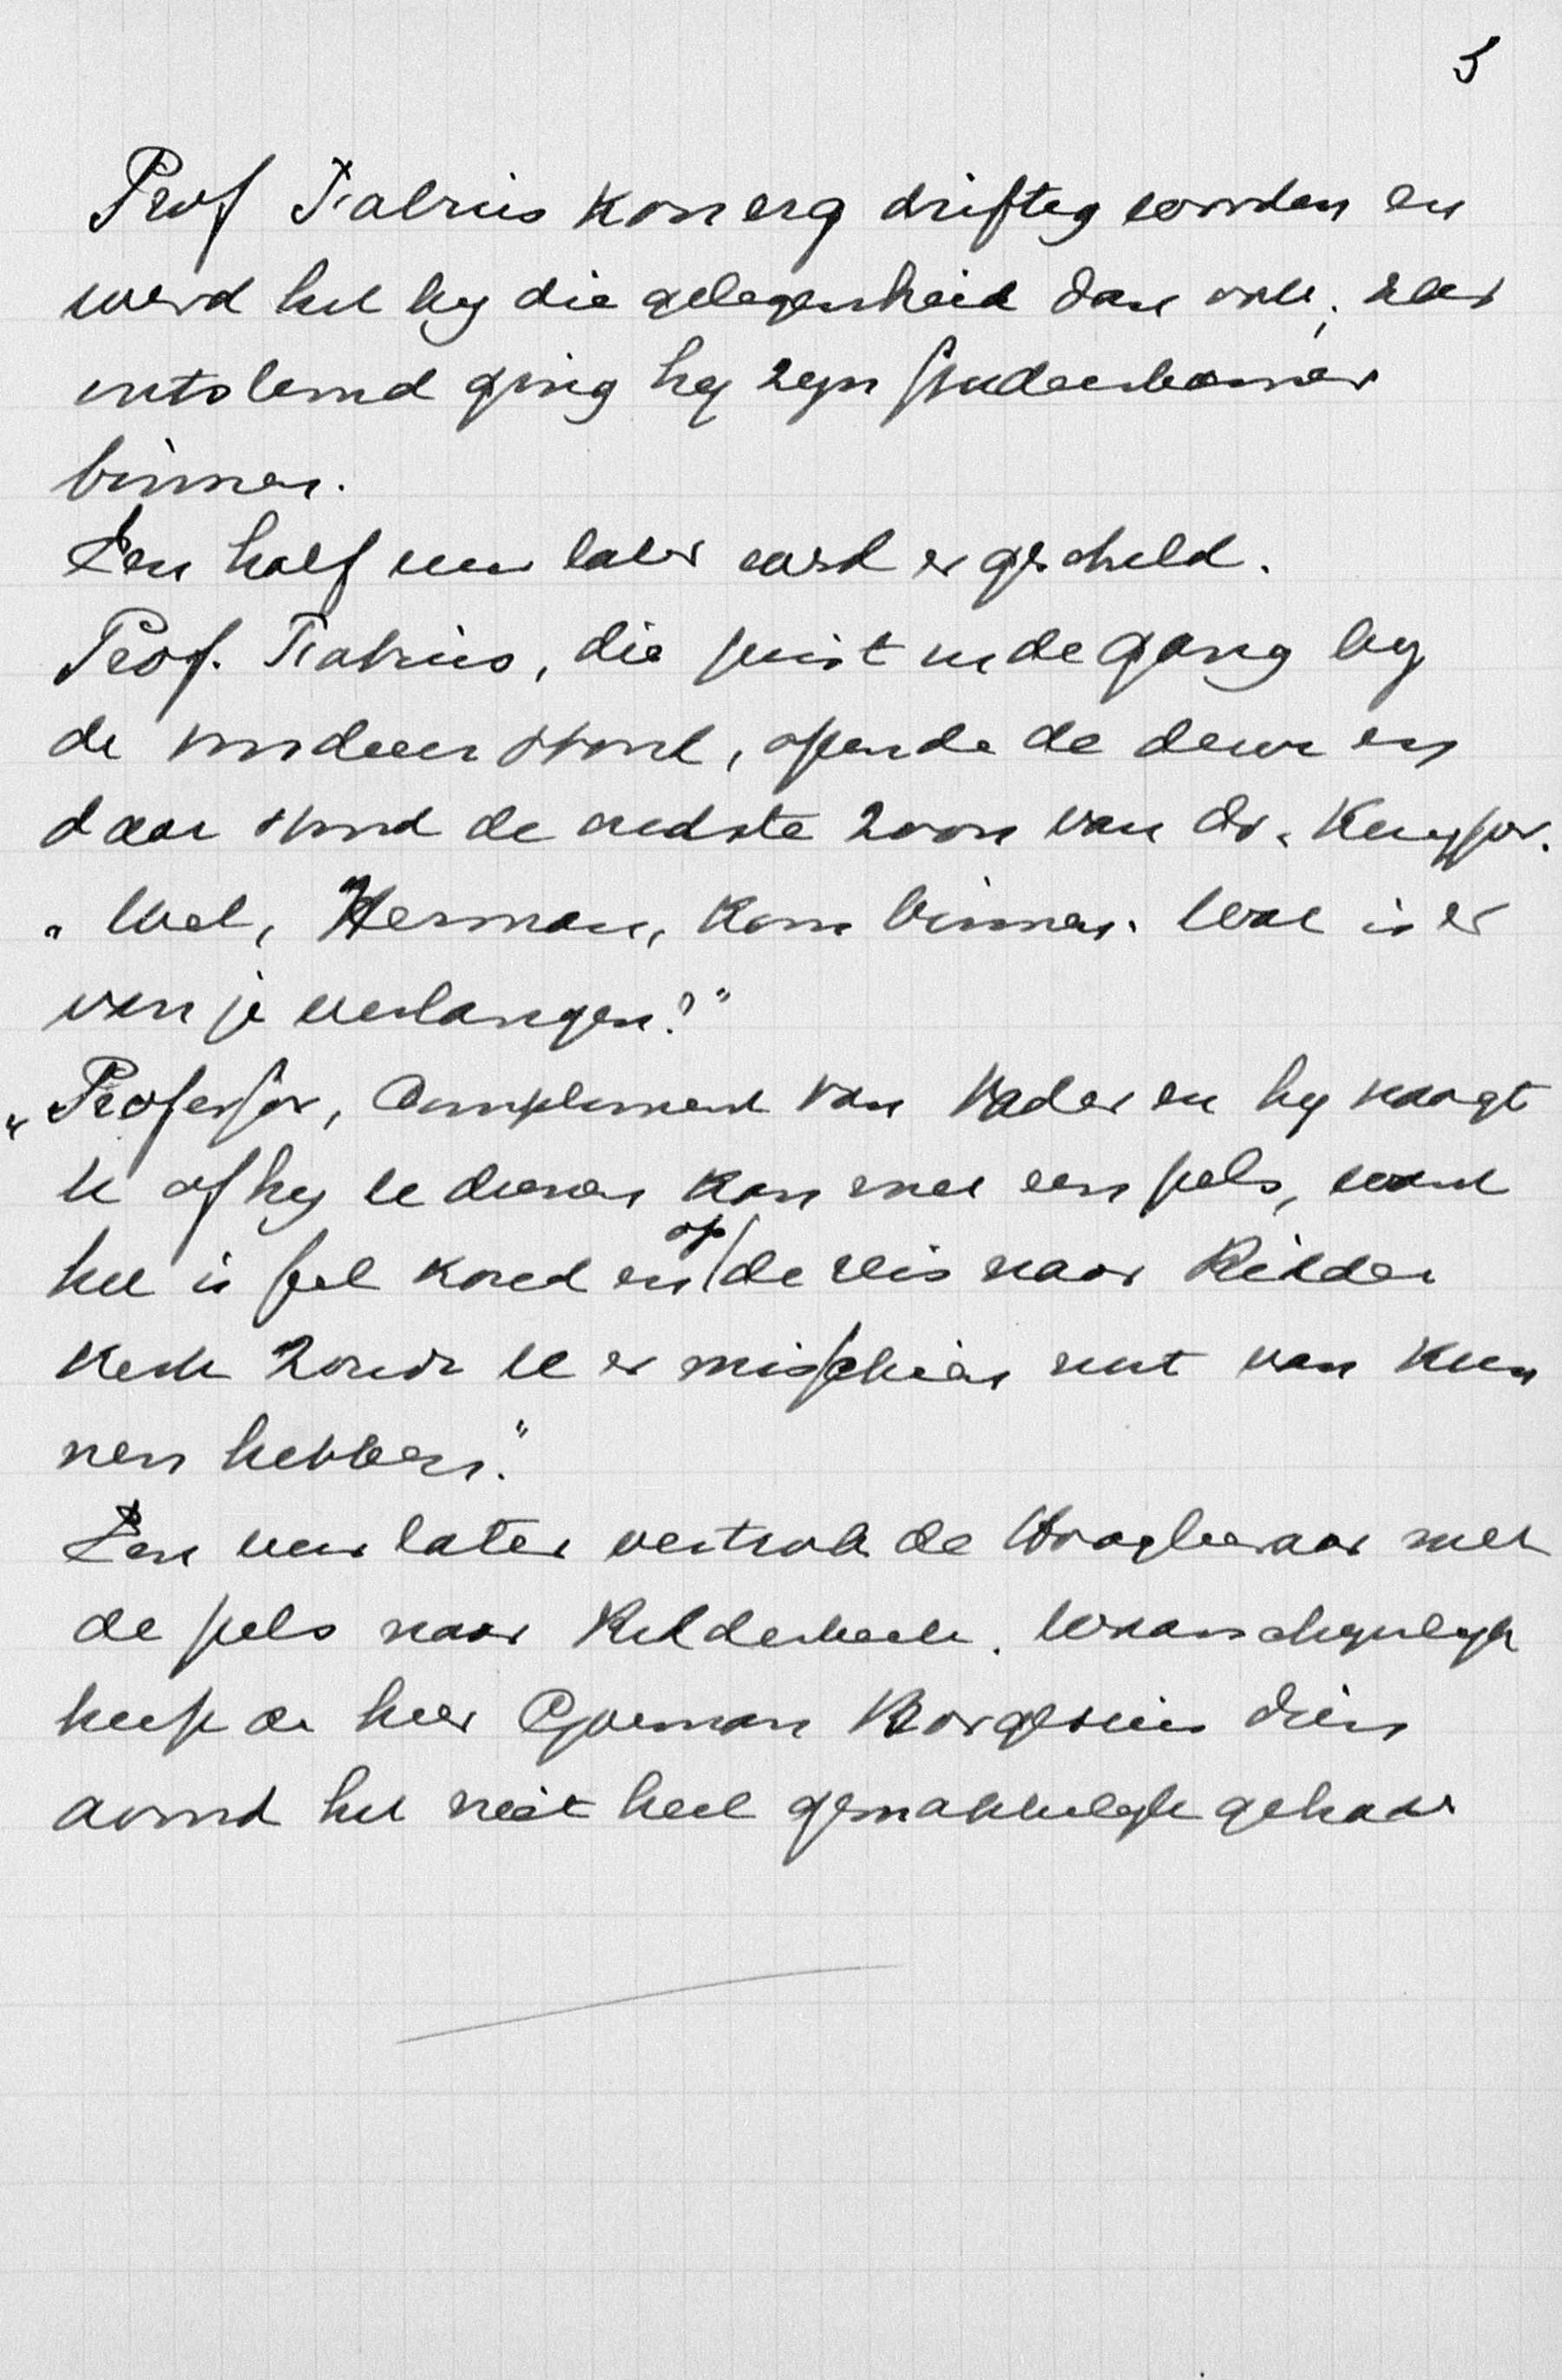 3
Prof Fabius kon erg driftig worden en
werd het bij die gelegenheid dan ook; zeer
ontstemd ging hij zijn studeerkamer
binnen.
Een half uur later werd er gescheld.
Prof. Fabius, die juist in de gang bij
de voordeur stond, opende de deur en
daar stond de oudste zoon van dr. Kuyper.
"Wel, Herman, kom binnen. Wat is er
van je verlangen?"
"Professor, Compliment van Vader en hij vraagt
U of hij U dienen kan met een pels, want
het is fel koud en op de reis naar Ridder
kerk zoudt U er misschien nut van kun
nen hebben."
Een uur later vertrok de Hoogleeraar met
de pels naar Ridderkerk. Waarschijnlijk
heeft de heer Goeman Borgesius dien
avond het niet heel gemakkelijk gehad